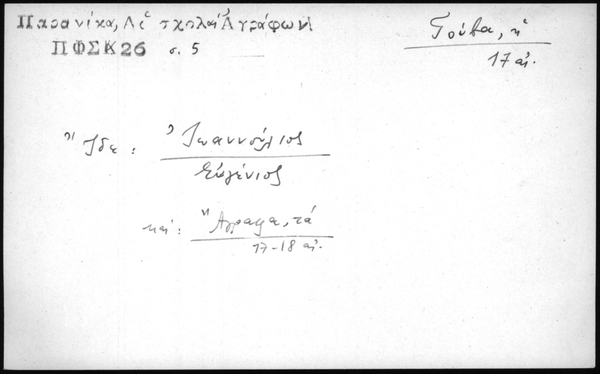 Παρανίκα, Αἱ σχολαὶ Ἀγράφων
ΠΦΣΚ26 σ. 5
Γούβα, ἡ
17 αἰ.
Ἴδε: Ἰωαννούλιος
Εὐγένιος
καί: Ἄγραφα, τά
17-18 αἰ.